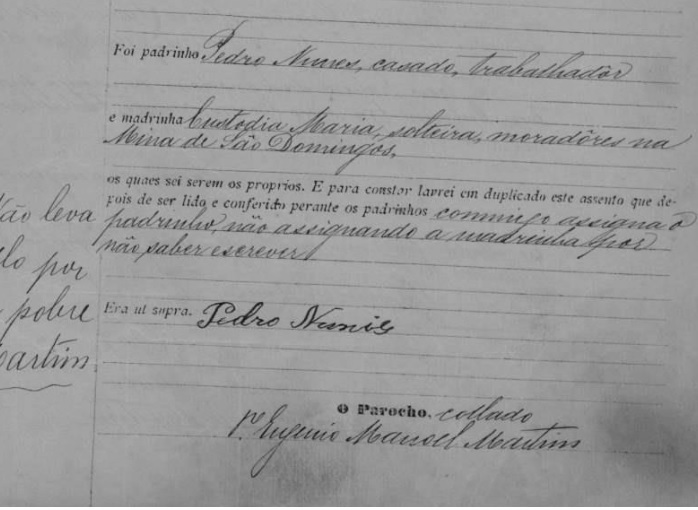 Foi padrinho Pedro Nunes, casado, trabalhadôr
e madrinha Custodia Maria, solteira, moradôres na
Mina de São Domingos,
os quaes sei serem os proprios. E para constar lavrei em duplicado este assento que de-
pois de ser lido e conferido perante os padrinhos commigo assigna o
padrinho, não assignando a madrinha por
não saber escrever
Era ut supra. Pedro Nunis
O Parocho, collado
P.e Eugenio Manoel Martins
Não leva
por
pobre
Martins